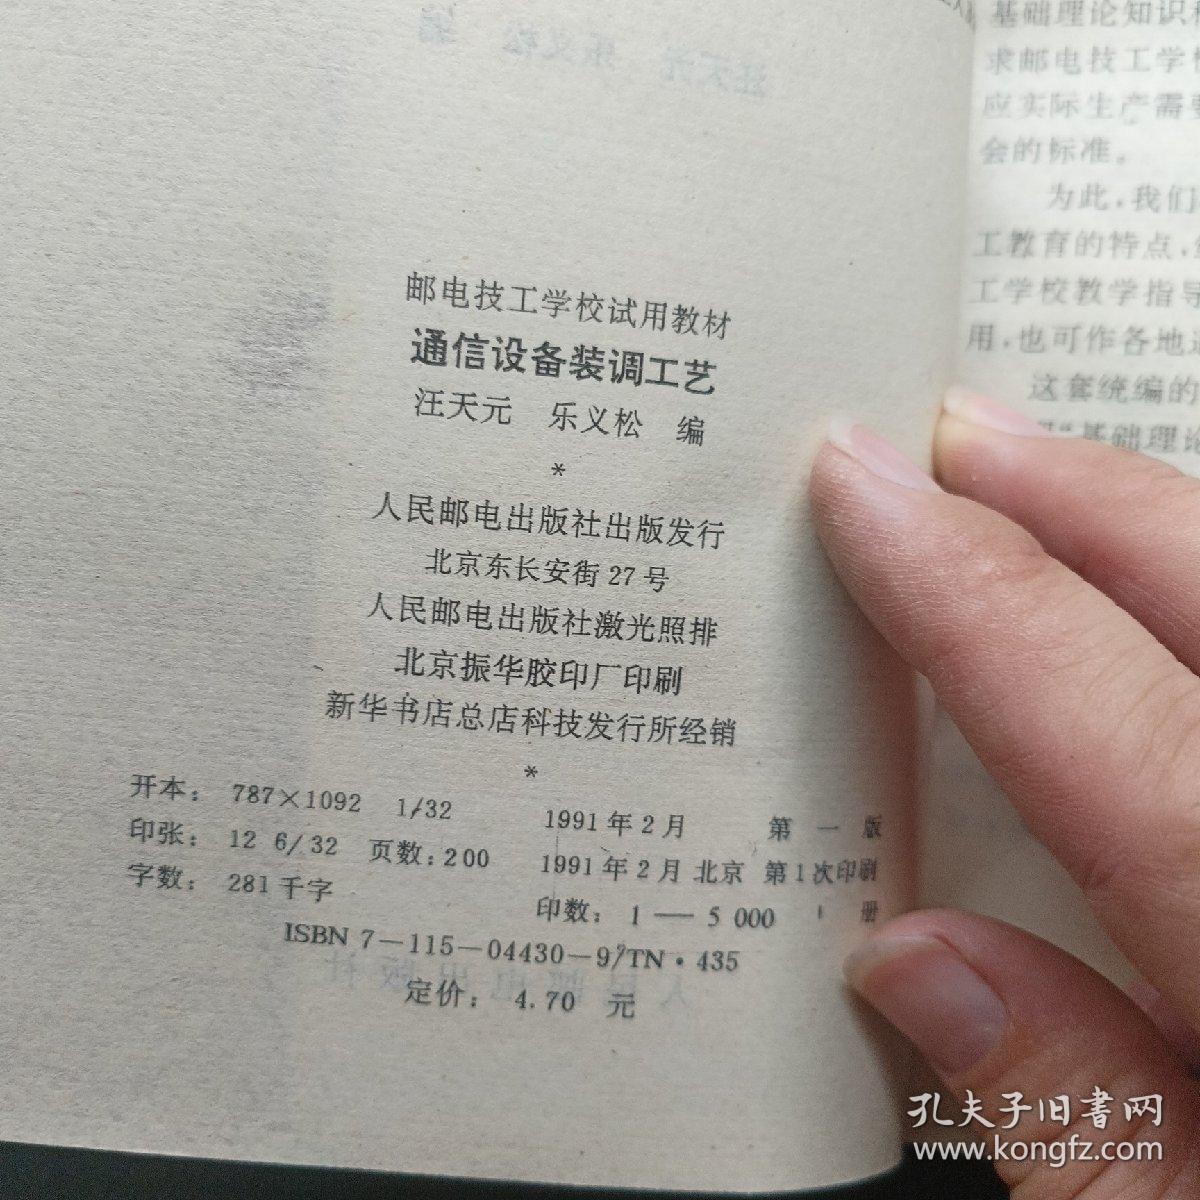 邮电技工学校试用教材
通信设备装调工艺
汪天元 乐义松 编
*
人民邮电出版社出版发行
北京东长安街 27 号
人民邮电出版社激光照排
北京振华胶印厂印刷
新华书店总店科技发行所经销
*
开本： 787×1092 1/32 1991 年 2 月 第 一 版
印张： 12 6/32 页数：200 1991 年 2 月 北京 第 1 次印刷
字数： 281 千字 印数： 1 — 5 000 册
ISBN 7－115－04430－9/TN·435
定价： 4.70 元
基础理论知识
求邮电技工学
应实际生产需
会的标准。
为此，我们
工教育的特点，
工学校教学指导
用，也可作各地
这套统编的
"基础理论
孔夫子旧书网
www.kongfz.com